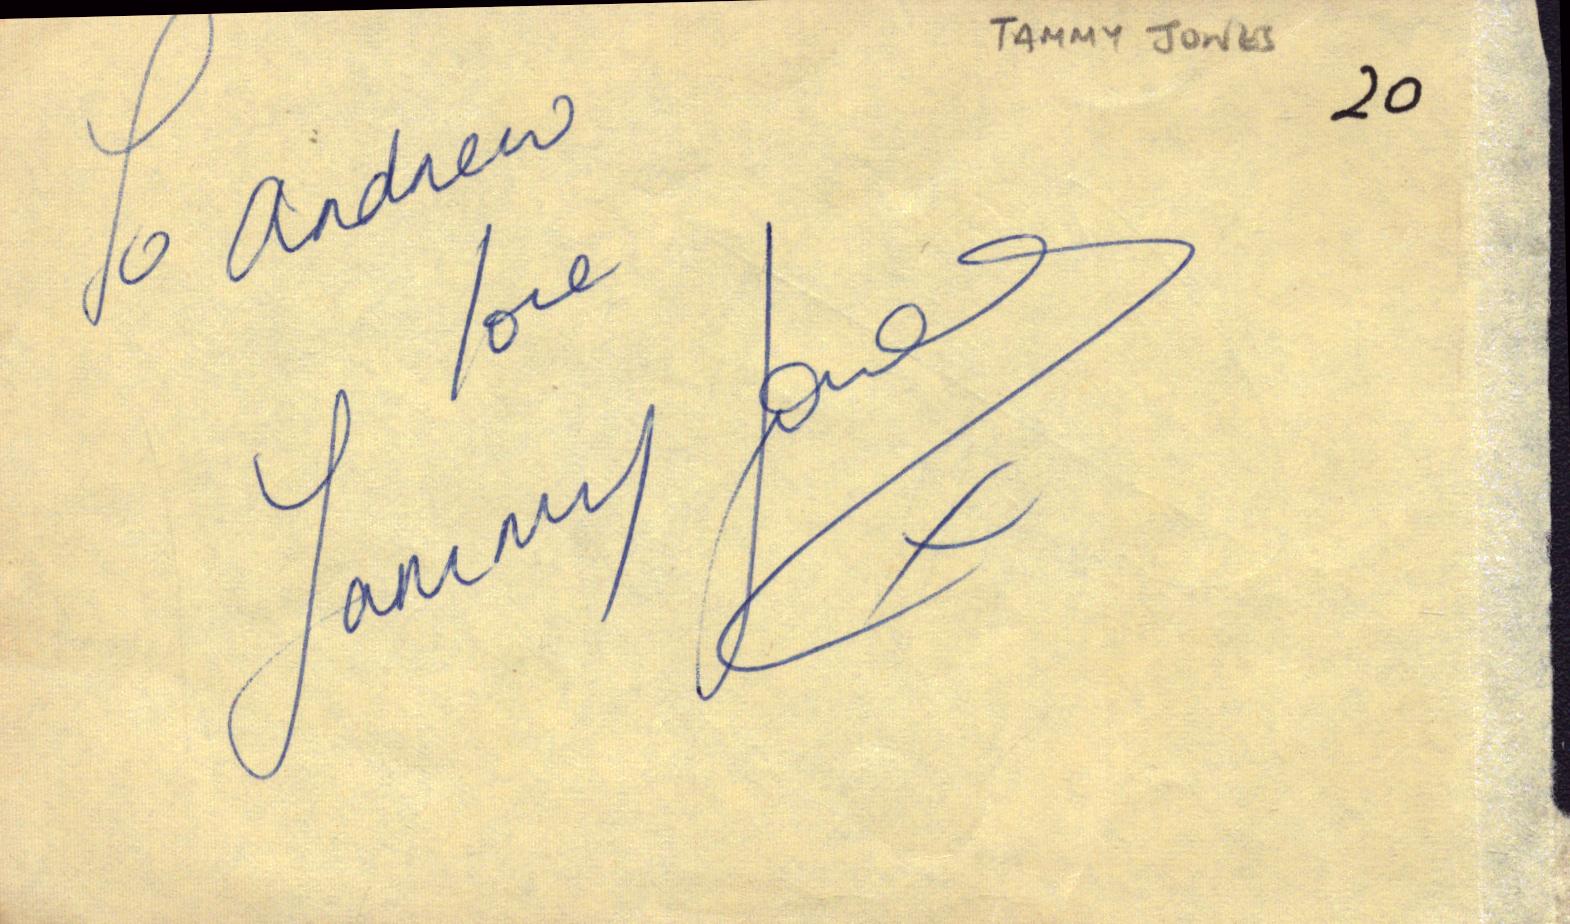 TAMMY JONES
20
To Andrew
love
Tammy Jones
x